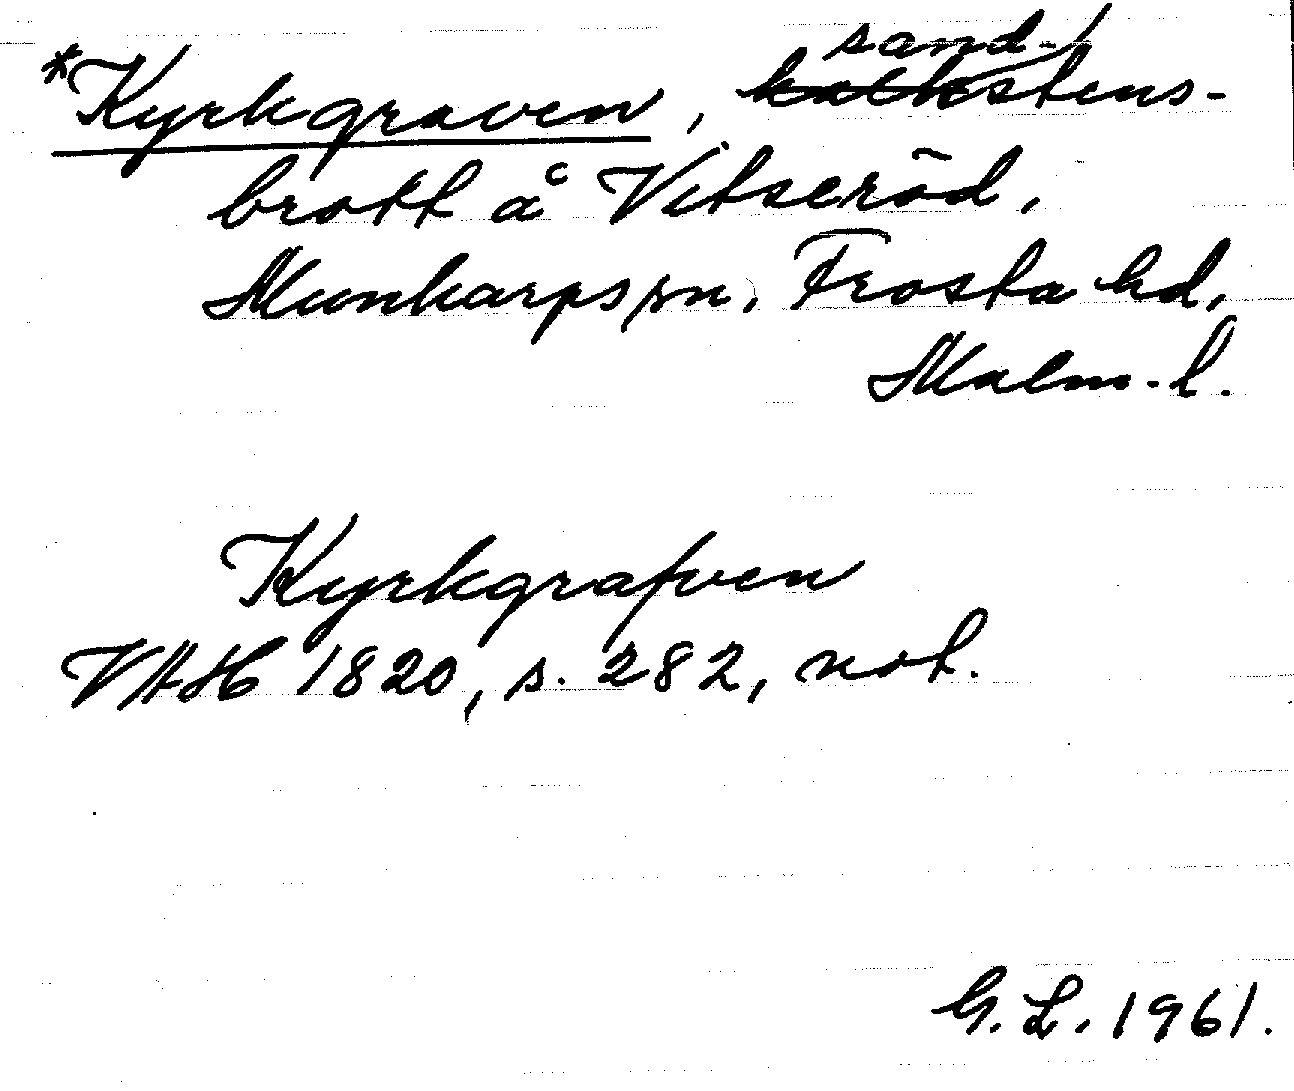 *Kyrkgraven, sand-/ kalkstens-
brott å Vitseröd,
Munkarps sn, Frosta hd,
Malm.l.
Kyrkgrafven
VAH 1820, s. 282, not.
G. L. 1961.